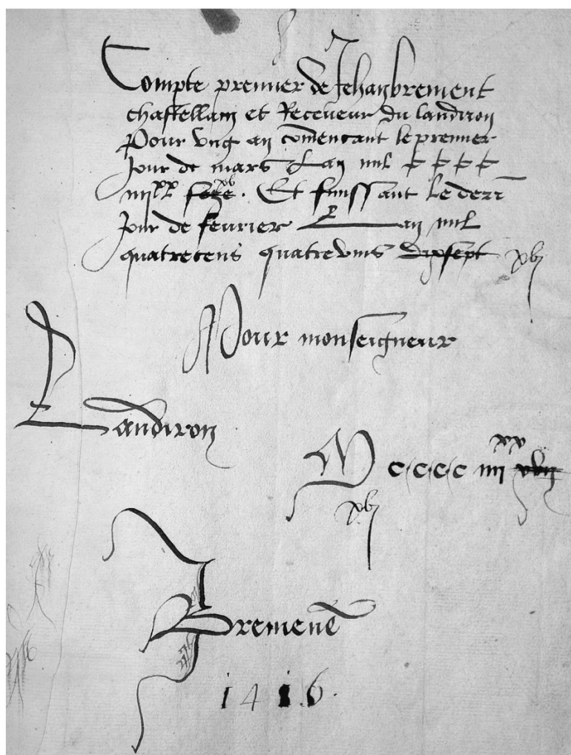 Compte premier de Jehan brement
chastellain et Receveur du landiron
Pour ung an comencant le premier
Jour de mars Lan mil cccc
iiiixx seze xv. Et finissant le derr
Jour de fevrier Lan mil
quatrecens quatrevins dixsept xvj
Pour monseigneur
Landiron
M cccc iiii xx xvij
xvj
J
Bremen